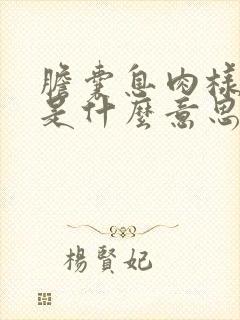 膽囊息肉樣
是什麼意思
楊賢妃